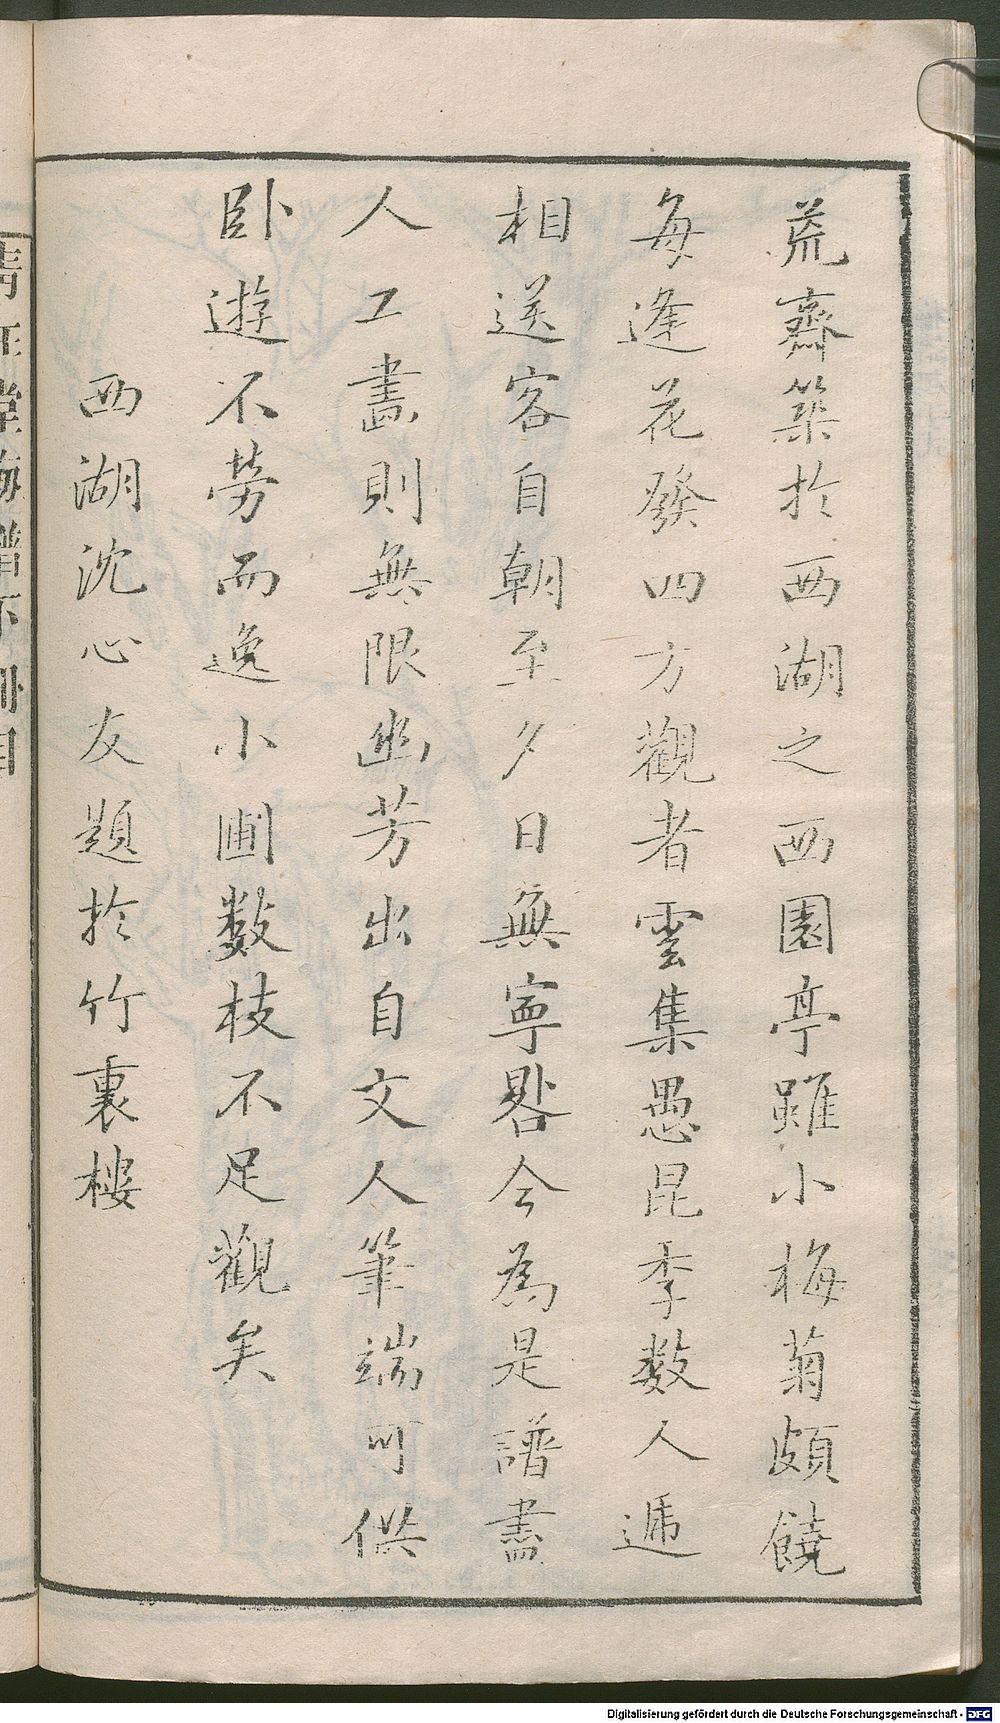 荒齋築於西湖之西園亭雖小梅菊頗饒
每逢花發四方觀者雲集愚昆季數人遞
相送客自朝至夕日無寧晷今為是譜盡
人工畫則無限幽芳出自文人筆端可供
卧遊不勞而逸小圃數枝不足觀矣
西湖沈心友題於竹裏樓
Digitalisierung gefördert durch die Deutsche Forschungsgemeinschaft - DFG